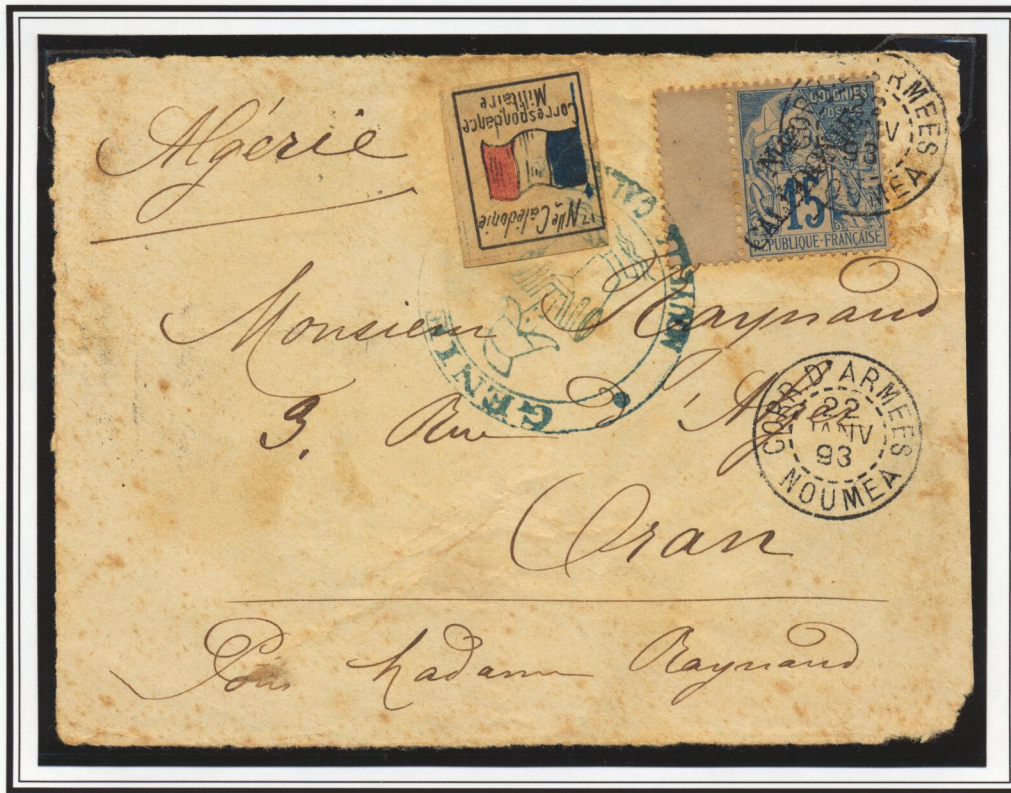 Algérie
Correspondance
Militaire
Nlle Calédonie
COLONIES
POSTES
15
RÉPUBLIQUE-FRANÇAISE
ARMEES
GENIE
Monsieur Raynaud
3, Rue d'Alger
Oran
CORR D'ARMEES
22
JANV
93
NOUMEA
Pour Madame Raynaud